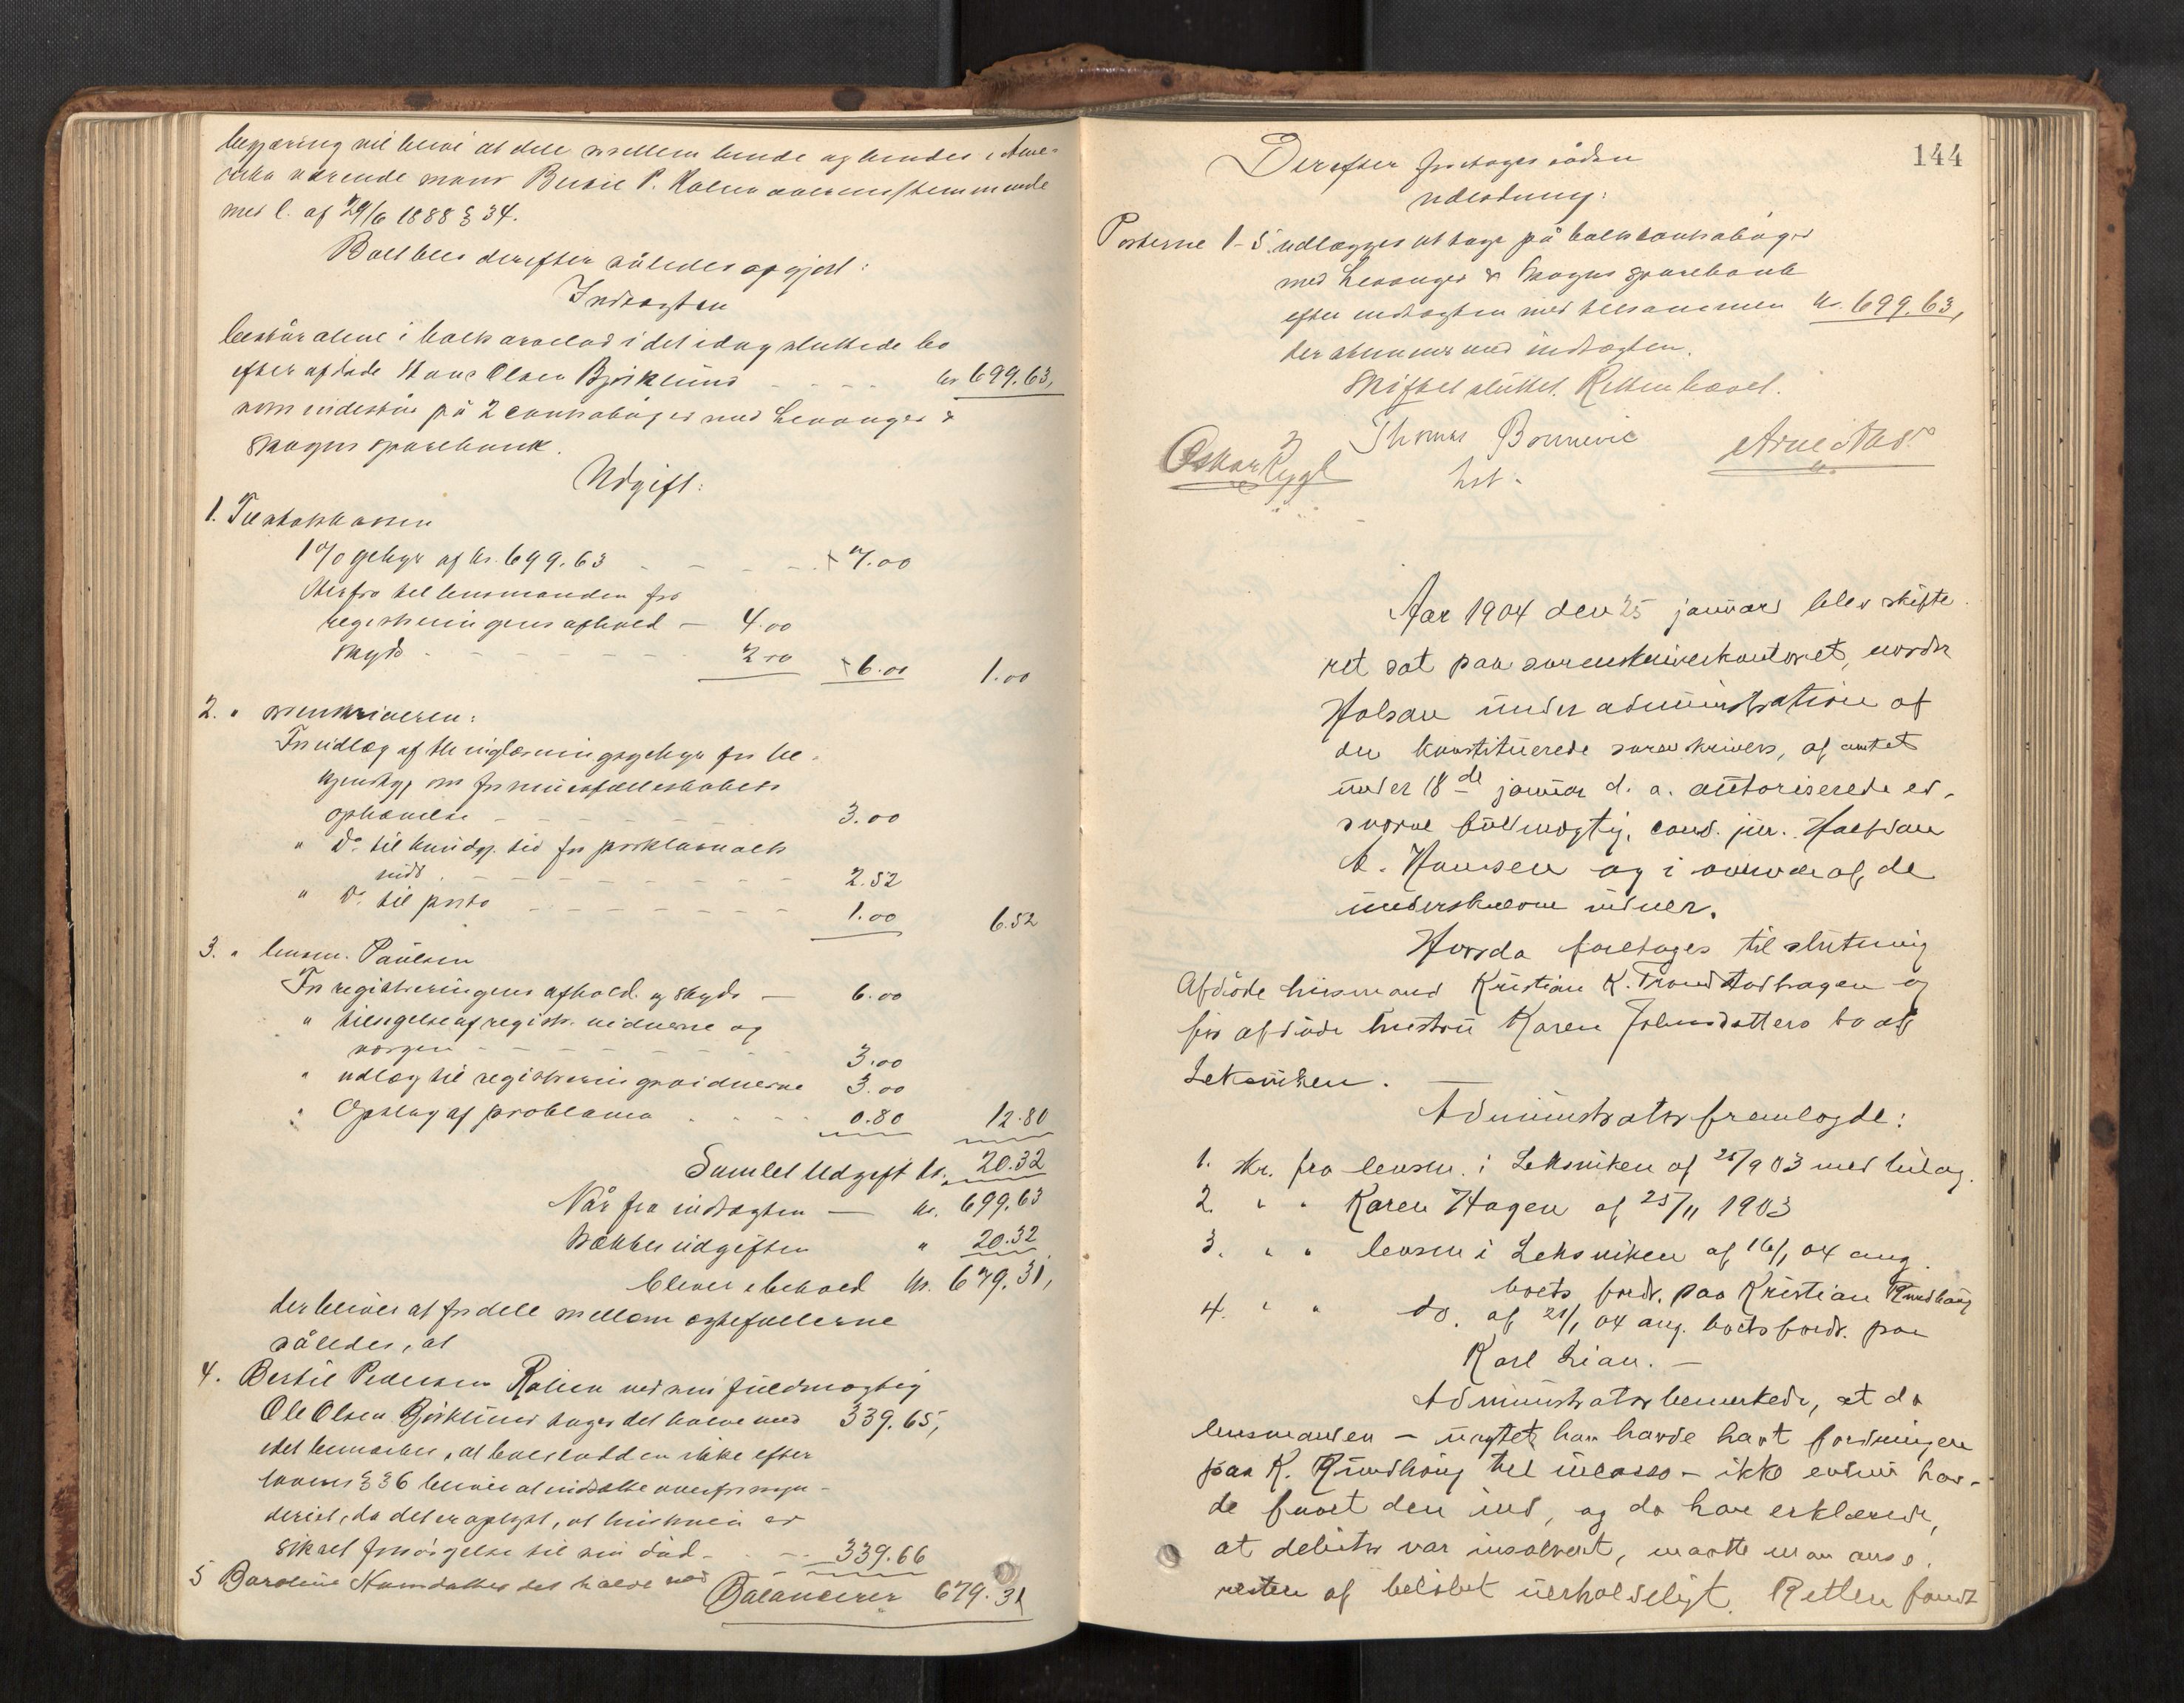 begjæring vil blive at dele mellem hende og hendes i Ame-
rika værende mand P. overensstemmende
med l. af 29/6 1888 § 34.
Boet blev derefter således opgjort:
Indtægten
består alene i boets arvelod i det idag sluttede bo
efter afdøde Hans Olsen Bjørklund - - - - kr 699.63,
som indestår på 2 contrabøger med Levanger &
Skogns sparebank.
Udgift:
1. Til statskassen
1 % gebyr af kr. 699.63 - - - - 7.00
Herfra til lensmanden for
registreringens afhold - 4.00
skyds - - - - - 2.00 6.00 1.00
2. " sorenskriveren:
For udlæg af thinglæsningsgebyr for be-
kjendtg. om formuesfællesskabets
ophævelse - - - - 3.00
" Do. til kundg. tid for proklamaets
indr. - - - - 2.52
" Do. til porto - - - - 1.00 6.52
3. " lensm. Paulsen
For registreringens afhold. og skyds - 6.00
" tilsigelse af registr. vidnerne og
værgen - - - - 3.00
" udlæg til registreringsvidnerne 3.00
" Opslag af proklama - - - 0.80 12.80
Samlet Udgift kr. 20.32
Når fra indtægten - kr. 699.63
trækkes udgiften " 20.32
bliver i behold kr. 679.31,
der bliver at fordele mellem ægtefællerne
således, at
4. Bertil Pedersen ved sin fuldmægtig
Ole Olsen Bjørklund tager det halve med 339.65,
idet bemærkes, at boeslodden ikke efter
lovens § 36 bliver at indsætte i overformyn-
deriet, da det er oplyst, at hustruen er
sikret forsørgelse til sin død - - - 339.66
5 det halve med Balancerer 679.31
144
Derefter foretoges sådan
udlodning:
Posterne 1-5 udlægges at tage på boets contrabøger
med Levanger & Skogns sparebank
efter indtægten med tilsammen kr. 699.63,
der stemmer med indtægten.
Skiftet sluttet. Retten hævet.
Thomas Bonnevie
Oskar
hst.
Aar 1904 den 25 januar blev skifte
ret sat paa sorenskriverkontoret, nordre
Holsan under administration af
den konstituerede sorenskriver, af amtet
under 18de januar d. a. autoriserede ed-
svorne fuldmægtig, cand. jur. Halfdan
A. Hansen og i overvær af de
underskrevne vidner.
Hvorda foretages til slutning
Afdøde husmand Kristian K. Trondstadhagen og
før afdøde hustru Karen Johnsdatters bo af
Leksviken.
Administrator fremlagde:
1. skr. fra lensm. i Leksviken af 25/9 03 med bilag.
2. " " Karen Hagen af 25/11 1903
3. " " lensm i Leksviken af 16/1 04 ang.
boets fordr. paa Kristian Rundhaug
4. " " do. af 21/1 04 ang. boets fordr. paa
Karl Lian. -
Administrator bemerkede, at da
lensmanden - uagtet han havde havt fordringen
paa K. Rundhaug til incasso - ikke endnu hav-
de faaet den ind, og da han erklærede,
at debitor var insolvent, maatte man anse
resten af beløbet uerholdeligt. Retten fandt